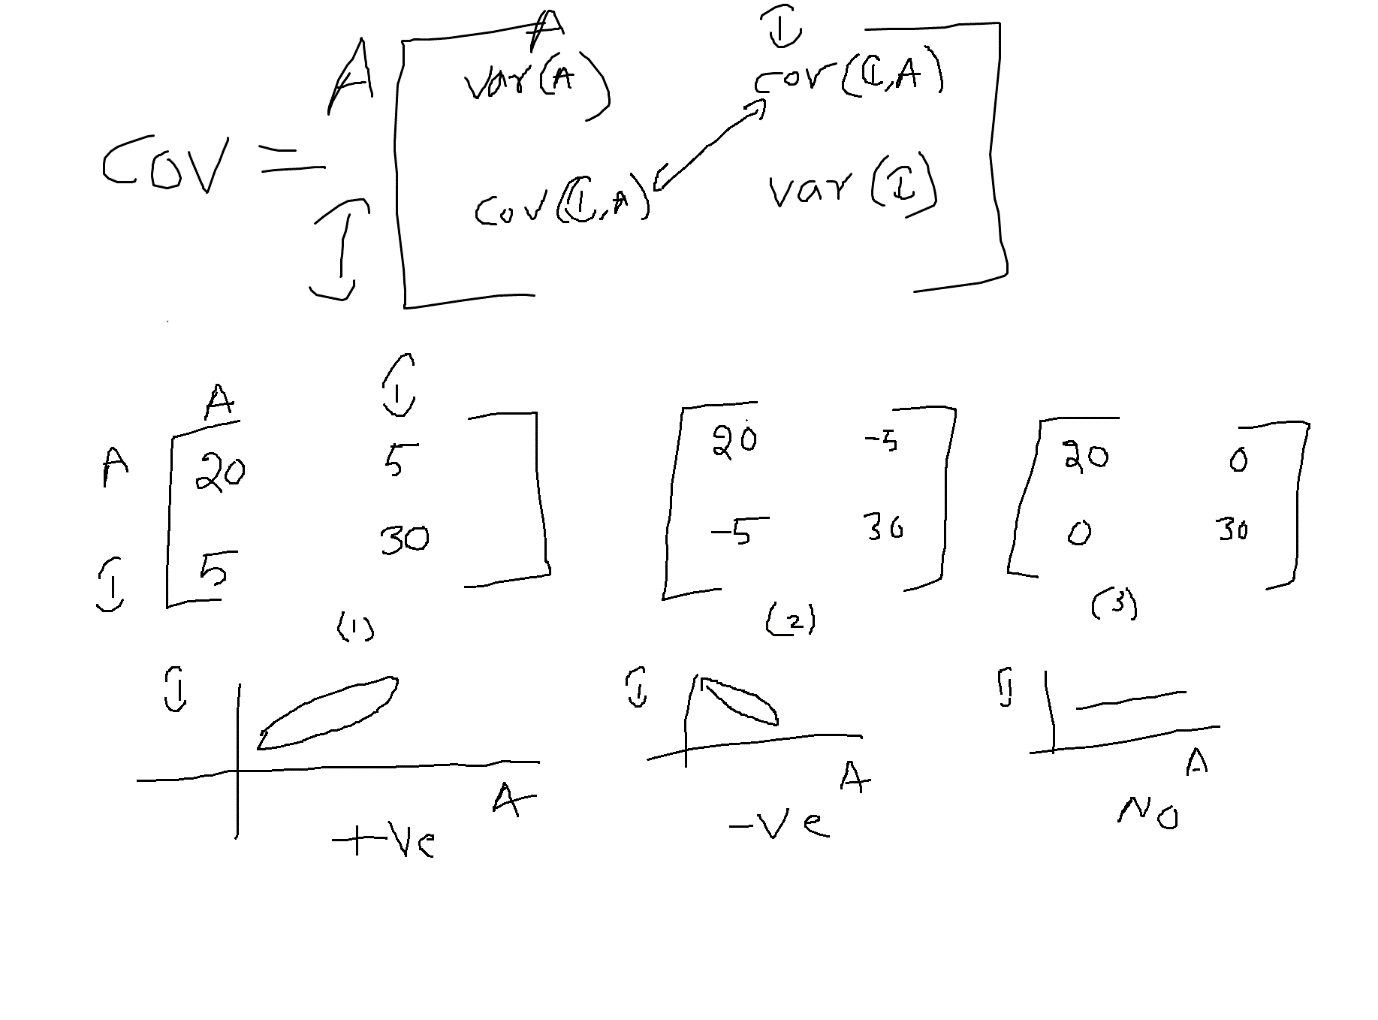 A I
A var(A) cov(I,A)
COV =
I cov(I,A) var(I)
A I
A 20 5
I 5 30
(1)
20 -5
-5 30
(2)
20 0
0 30
(3)
I
A
+ve
I
A
-ve
I
A
NO